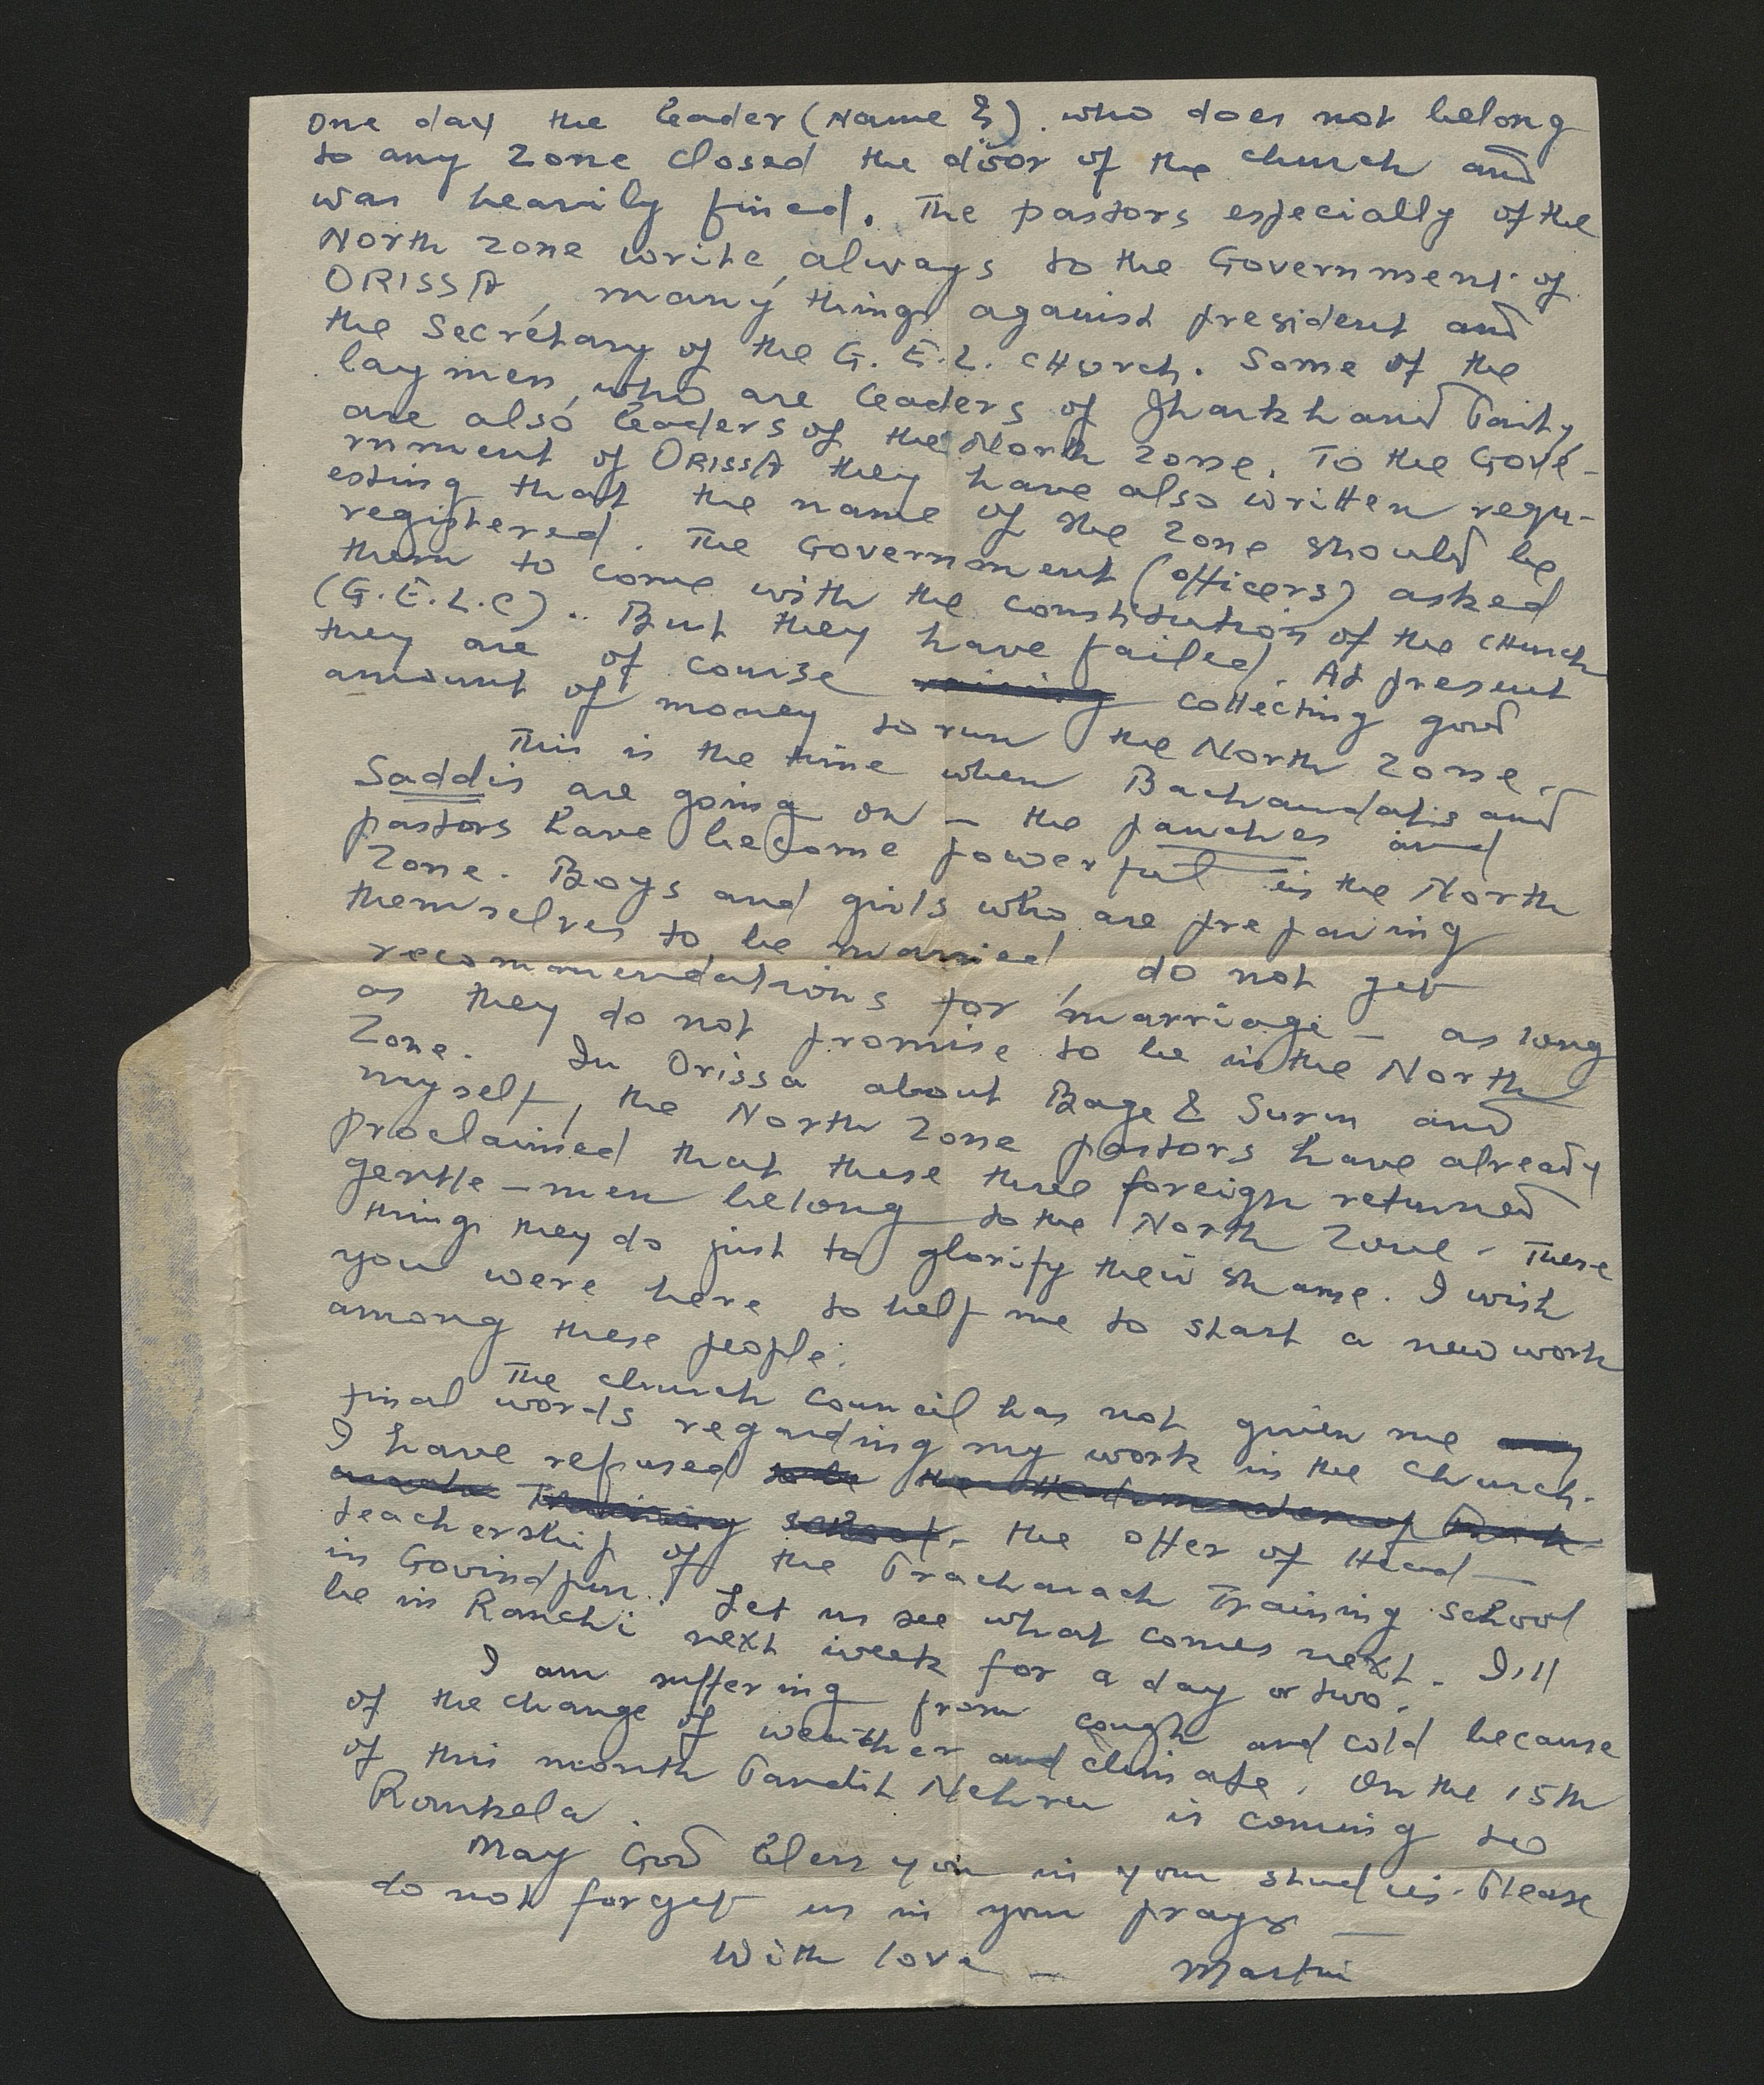 One day the leader (Name ?). who does not belong
to any Zone closed the door of the church and
was heavily fined. The pastors especially of the
North Zone write always to the Government of
ORISSA, many things against president and
the Secretary of the G.E.L. CHurch. Some of the
laymen, who are leaders of Jharkhand Party,
are also leaders of the North Zone. To the Gove-
rnment of ORISSA they have also written requ-
esting that the name of the Zone should be
registered. The Government (officers) asked
them to come with the constitution of the CHurch
(G.E.L.C).. But they have failed. At present
they are of course collecting good
amount of money to run the North Zone.
This is the time when Bachandatis and
Saddis are going on — the panches and
pastors have become powerful in the North
Zone. Boys and girls who are preparing
themselves to be married, do not get
recommendations for marriage — as long
as they do not promise to be in the North
Zone. In Orissa about Bage & Surin and
myself, the North Zone pastors have already
proclaimed that these three foreign returned
gentle-men belong to the North Zone. These
things they do just to glorify their shame. I wish
you were here to help me to start a new work
among these people.
The church Council has not given me any
final words regarding my work in the church.
I have refused to be the Headmaster of Prach-
arach Training School - the offer of Head-
teachership of the Pracharach Training School
in Govindpur. Let us see what comes next. I'll
be in Ranchi next week for a day or two.
I am suffering from cough and cold because
of the change of weather and climate. On the 15th
of this month Pandit Nehru is coming to
Rourkela.
May God bless you in your studies. Please
do not forget us in your prayer —
With love — Martin